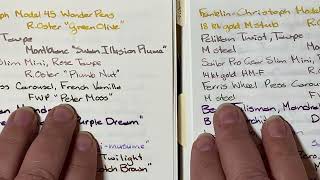 ph Model 45 Wonder Pens
R. Oster "Green Olive"
Taupe
Montblanc "Swan Illusion Plume"
Slim Mini, Rose Taupe
R. Oster "Plumb Nut"
ss Carousel, French Vanilla
FWP "Peter Moss"
Mandra
Purple Dream"
Twilight
otch Brown"
Franklin-Christoph Model
18 kt gold M Stub R.O
Pelikan Twist, Taupe
M steel M
Sailor Pro Gear Slim Mini,
14kt gold H-MF R.
Ferris Wheel Press Carousel
M steel F
Be Talisman, Mandra
B D